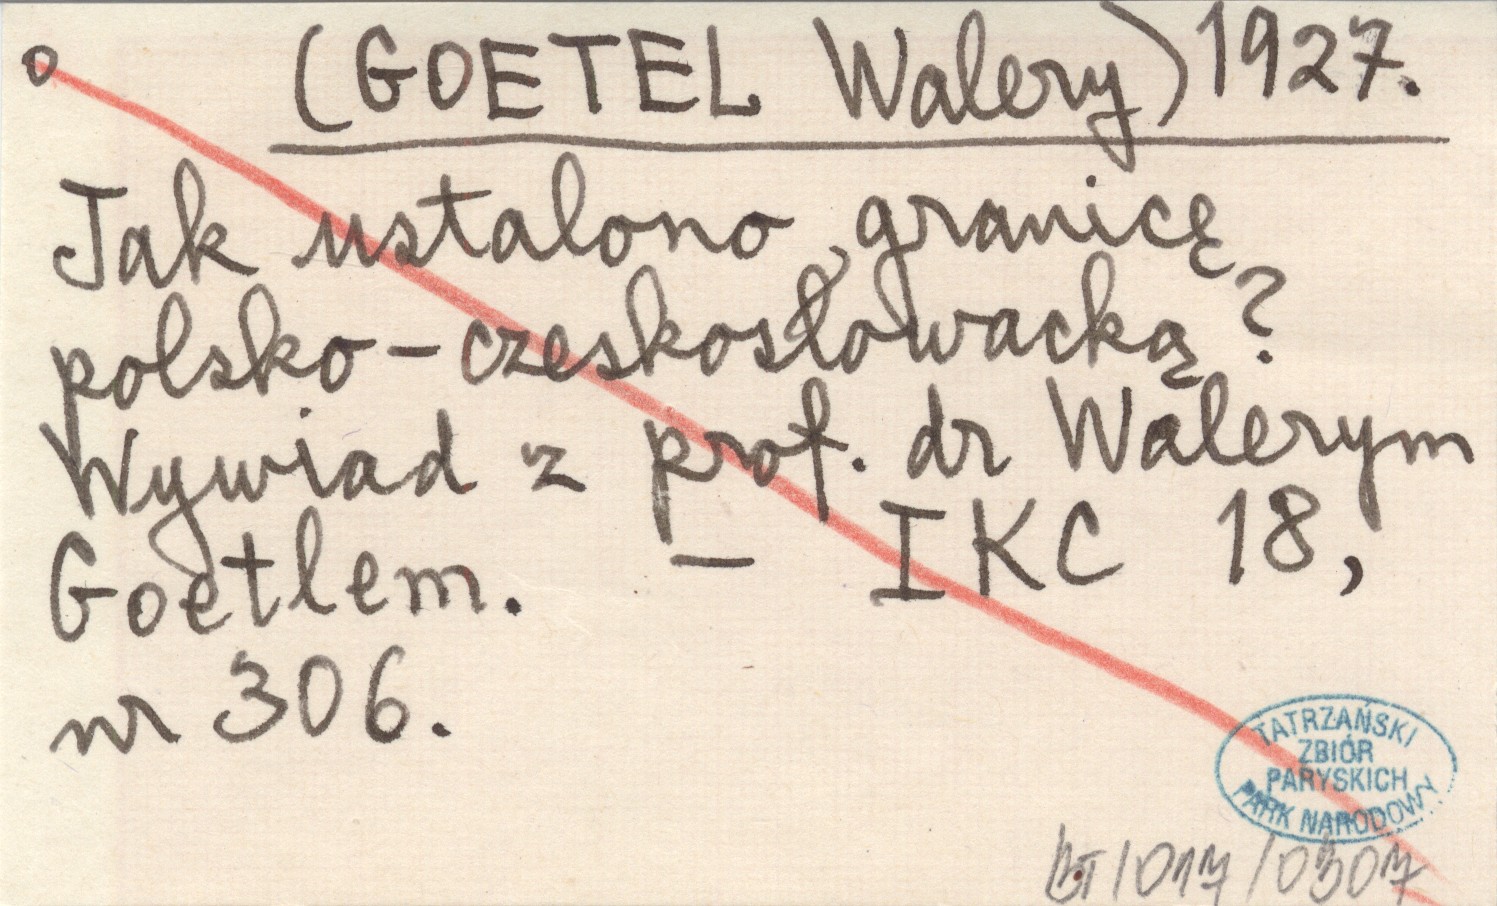 (GOETEL Walery) 1927.
Jak ustalono granicę
polsko-czeskosłowacką?
Wywiad z prof. dr Walerym
Goetlem. — IKC 18,
nr 306.
TATRZAŃSKI
ZBIÓR
PARYSKICH
PARK NARODOWY
BT/017/0307